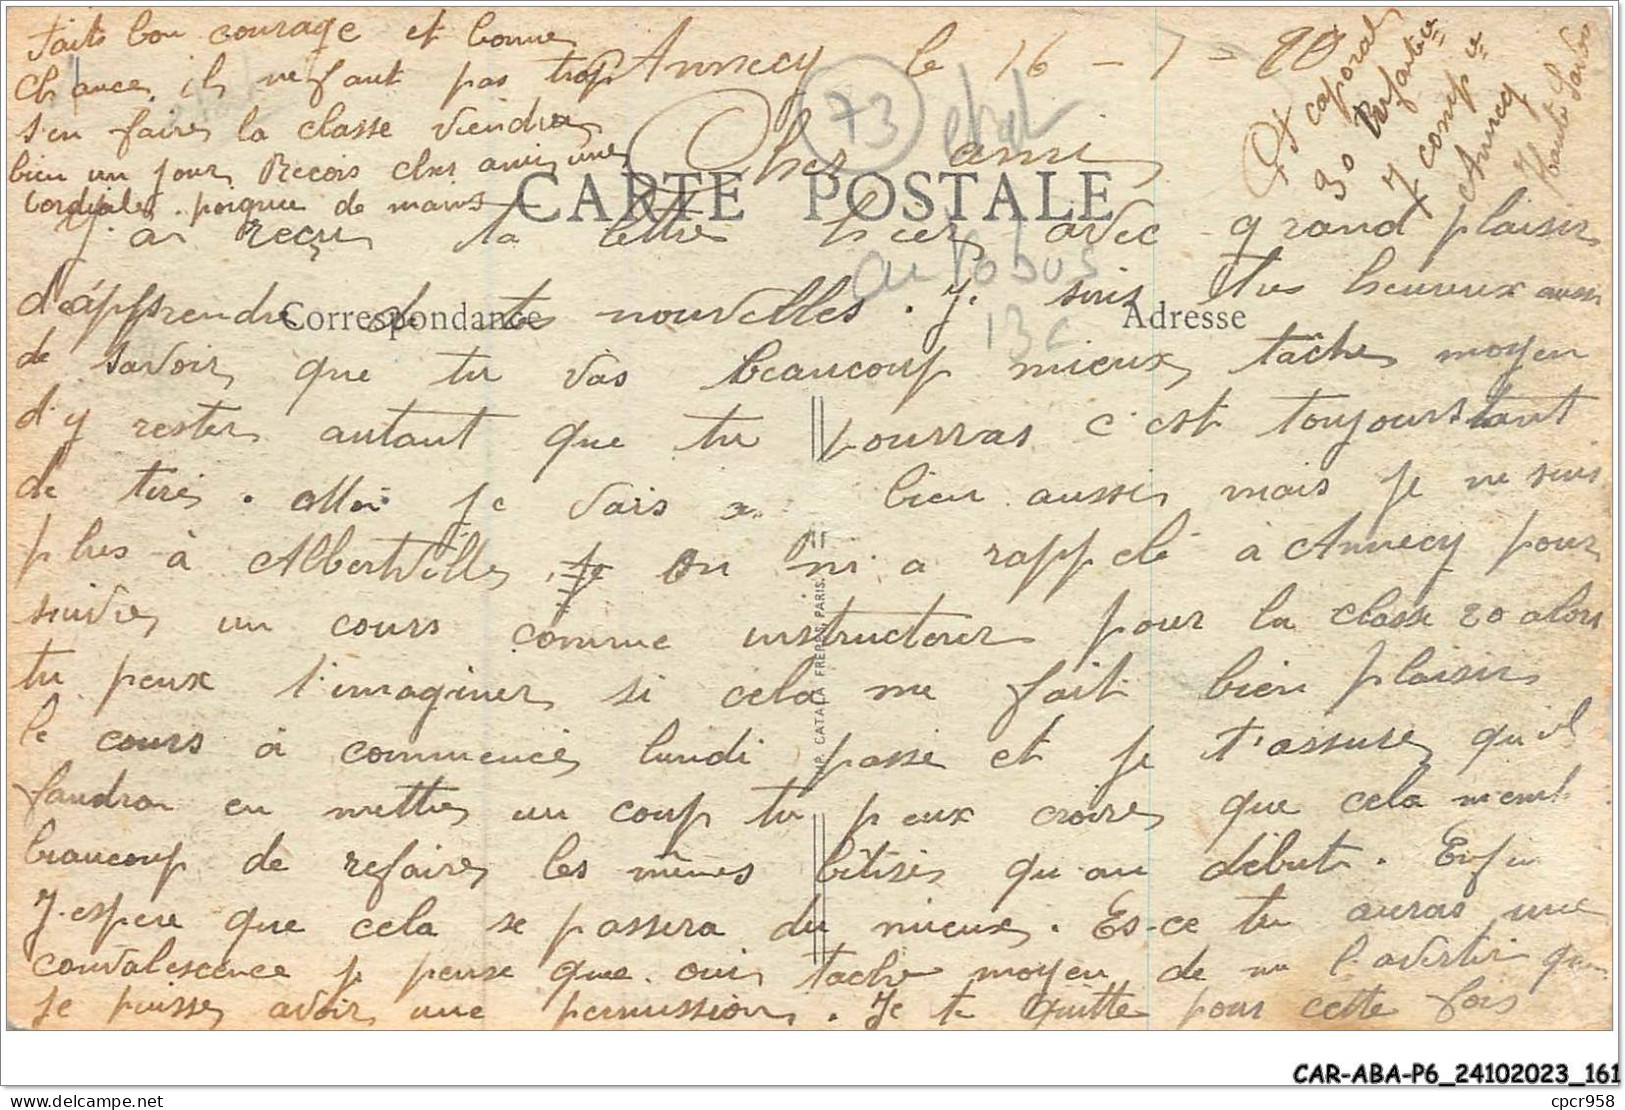 Annecy le 16 - 7 -
Cher ami
J'ai reçu ta lettre hier avec grand plaisir
d'apprendre de tes nouvelles. Je suis tres heureux aussi
de savoir que tu vas beaucoup mieux, tâche moyen
d'y rester autant que tu pourras c'est toujours tant
de tiré. Moi je vais bien aussi mais je ne suis
plus à Albertville, On m'a rappelé à Annecy pour
suivre un cours comme instructeur pour la classe 20 alors
tu peux t'imaginer si cela me fait bien plaisir
le cours a commencé lundi passé et je t'assure qu'il
faudra en mettre un coup tu peux croire que cela
beaucoup de refaire les mêmes bêtises qu'au début. Enfin
J'espere que cela se passera du mieux. Es-ce tu auras une
convalescence je pense que oui, tache moyen de m l'avertir que
je puisse avoir une permission. Je te quitte pour cette fois
Faits bon courage et bonne
chance, il ne faut pas trop
s'en faire la classe viendra
bien un jour Recois cher ami une
cordiale poignee de mains
caporal
30 Infanterie
7 comp ie
Annecy
Haute Savoie
73
etat
autobus
13c
CARTE POSTALE
Correspondance
Adresse
IMP. CATALA FRERES, PARIS.
CAR-ABA-P6_24102023_161
cpcr958